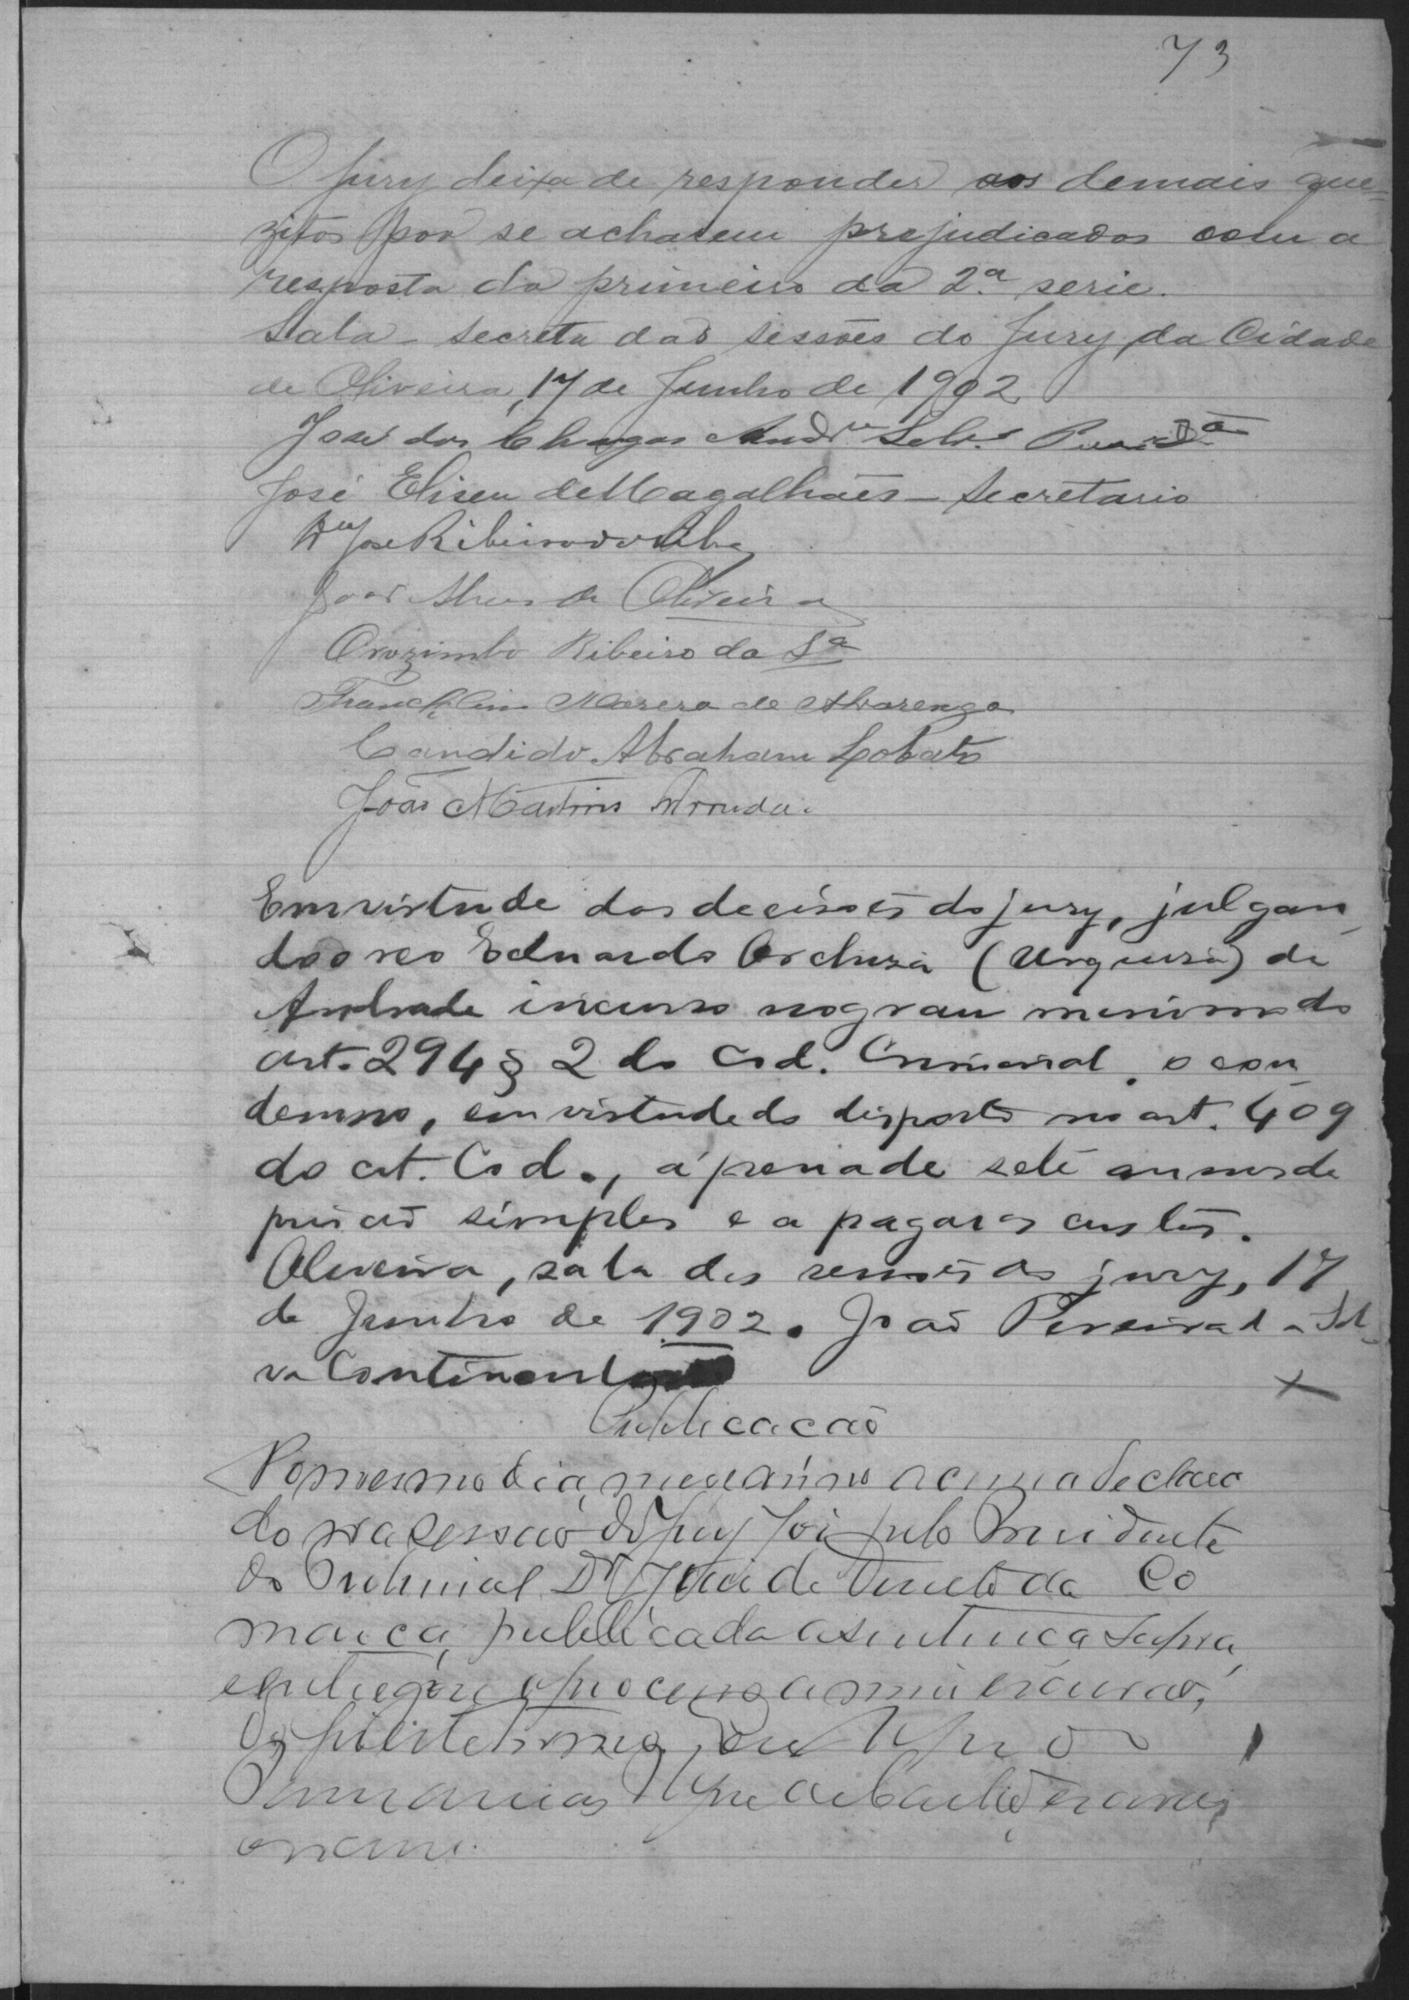 73
O jury deixa de responder aos demais que-
zitos por se acharem prejudicados com a
resposta do primeiro da 2.ª serie.
Sala secreta das sessões do Jury da Cidade
de Oliveira, 17 de Junho de 1902
José das Chagas Andr.e
José Eliseu de Magalhães - Secretario
José Ribeiro da Silva
João Alves de Oliveira
Orozimbo Ribeiro da S.ª
Francklin Morera de Alvarenga
Candido Abraham Lobato
João Martins Arruda.
Em virtude das decisões do jury, julgan-
do o reo Eduardo Orchuza (Urquiza) de
Andrade incurso no grau minimo do
art. 294 § 2 do Cod. Criminal, o con-
demno, em virtude do disposto no art. 409
do cit. Cod., á pena de sete annos de
prisão simples e a pagar as custas.
Oliveira, sala das sessões do jury, 17
de Junho de 1902. João Pereira da Sil-
va Continentino
Publicacão
No mesmo dia, mez e anno acima declara
do na sessão do Jury foi pelo Presidente
do Tribunal Dr Juiz de Direito da Co
marca, publicada a sentenca supra,
e entregue o processo a mim escrivão,
do que este termo. Eu
escrivão